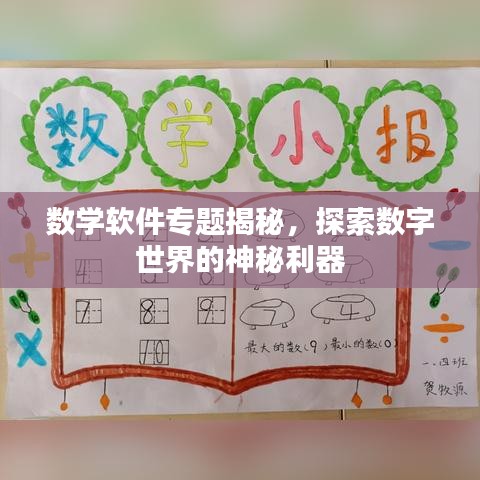 数学小报
数学软件专题揭秘，探索数字
世界的神秘利器
7 8 9 7 4
10
最大的数(9) 最小的数(0)
一、四班
贺牧源